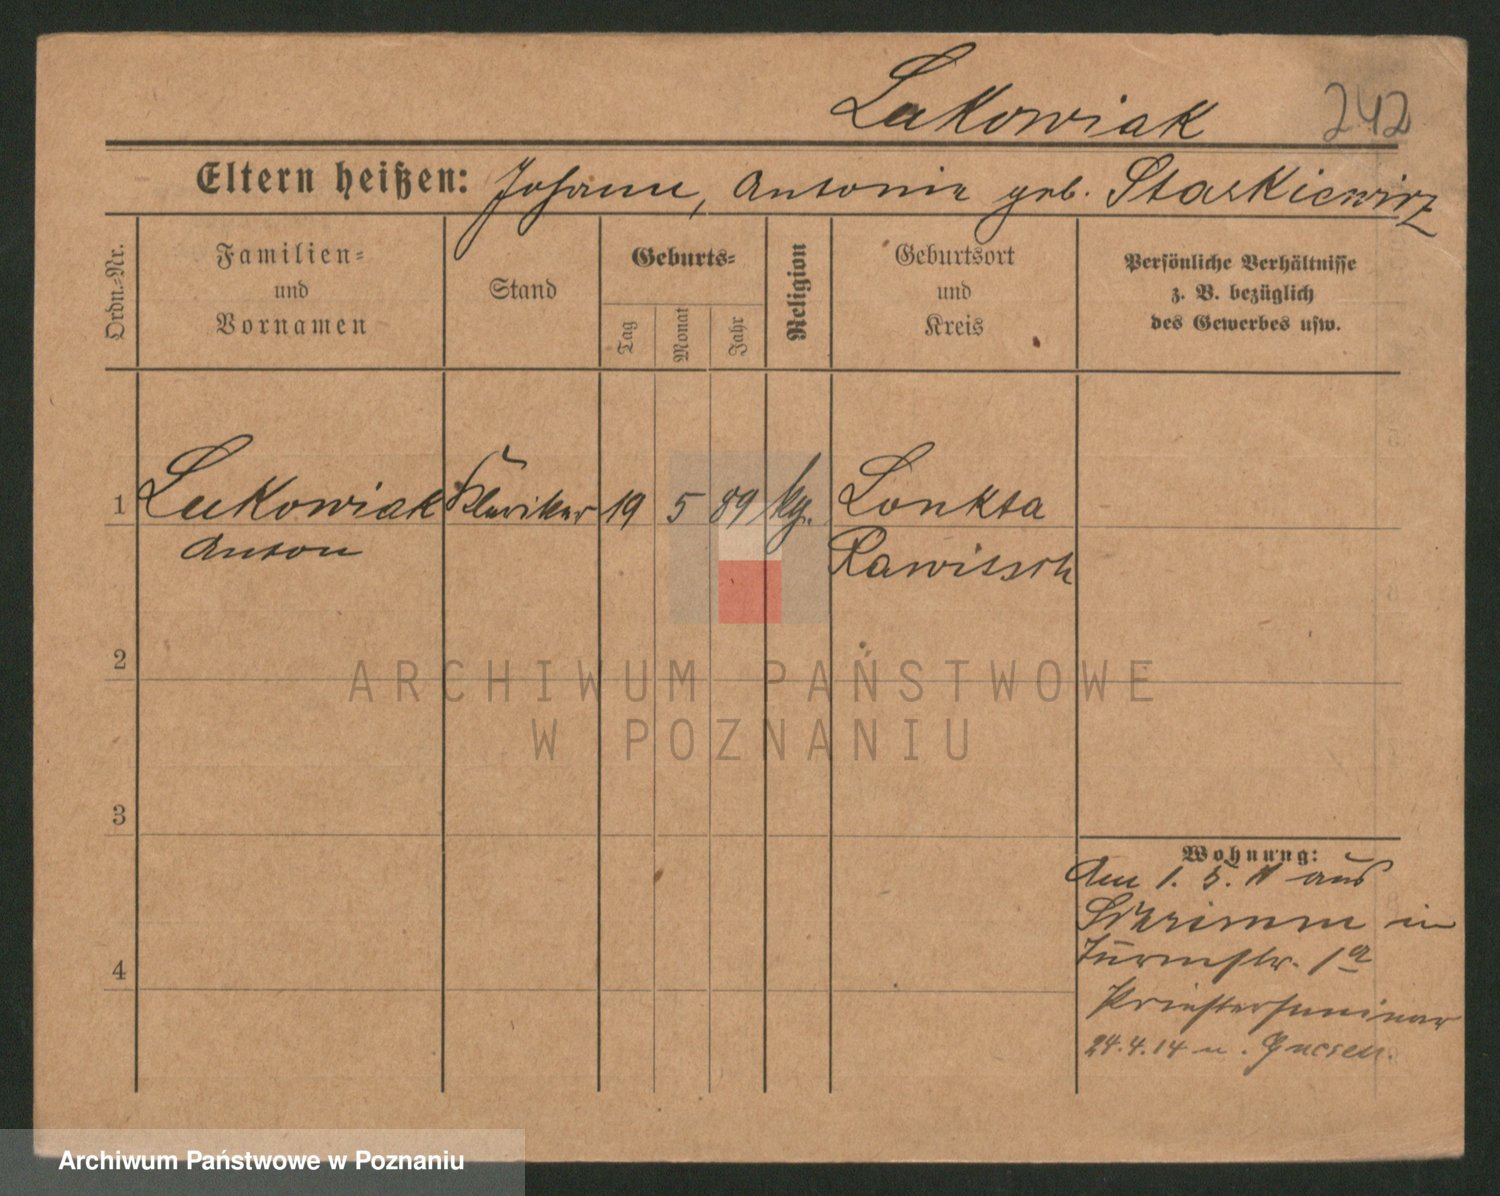 Lukowiak 242
Eltern heißen: Johann, Antonie geb. Staskiewicz
Ordn.-Nr.
Familien-
und
Vornamen
Stand
Geburts-
Tag
Monat
Jahr
Religion
Geburtsort
und
Kreis
Persönliche Verhältnisse
z. B. bezüglich
des Gewerbes usw.
1 Lukowiak Kleriker 19 5 89 kg. Lonkta
Anton Rawitsch
2
3
4
Wohnung:
Am 1. 5. 11 aus
Schrimm in
Turmstr. 1a
Priesterseminar
24.4.14 n. Gnesen.
ARCHIWUM PAŃSTWOWE
W POZNANIU
Archiwum Państwowe w Poznaniu